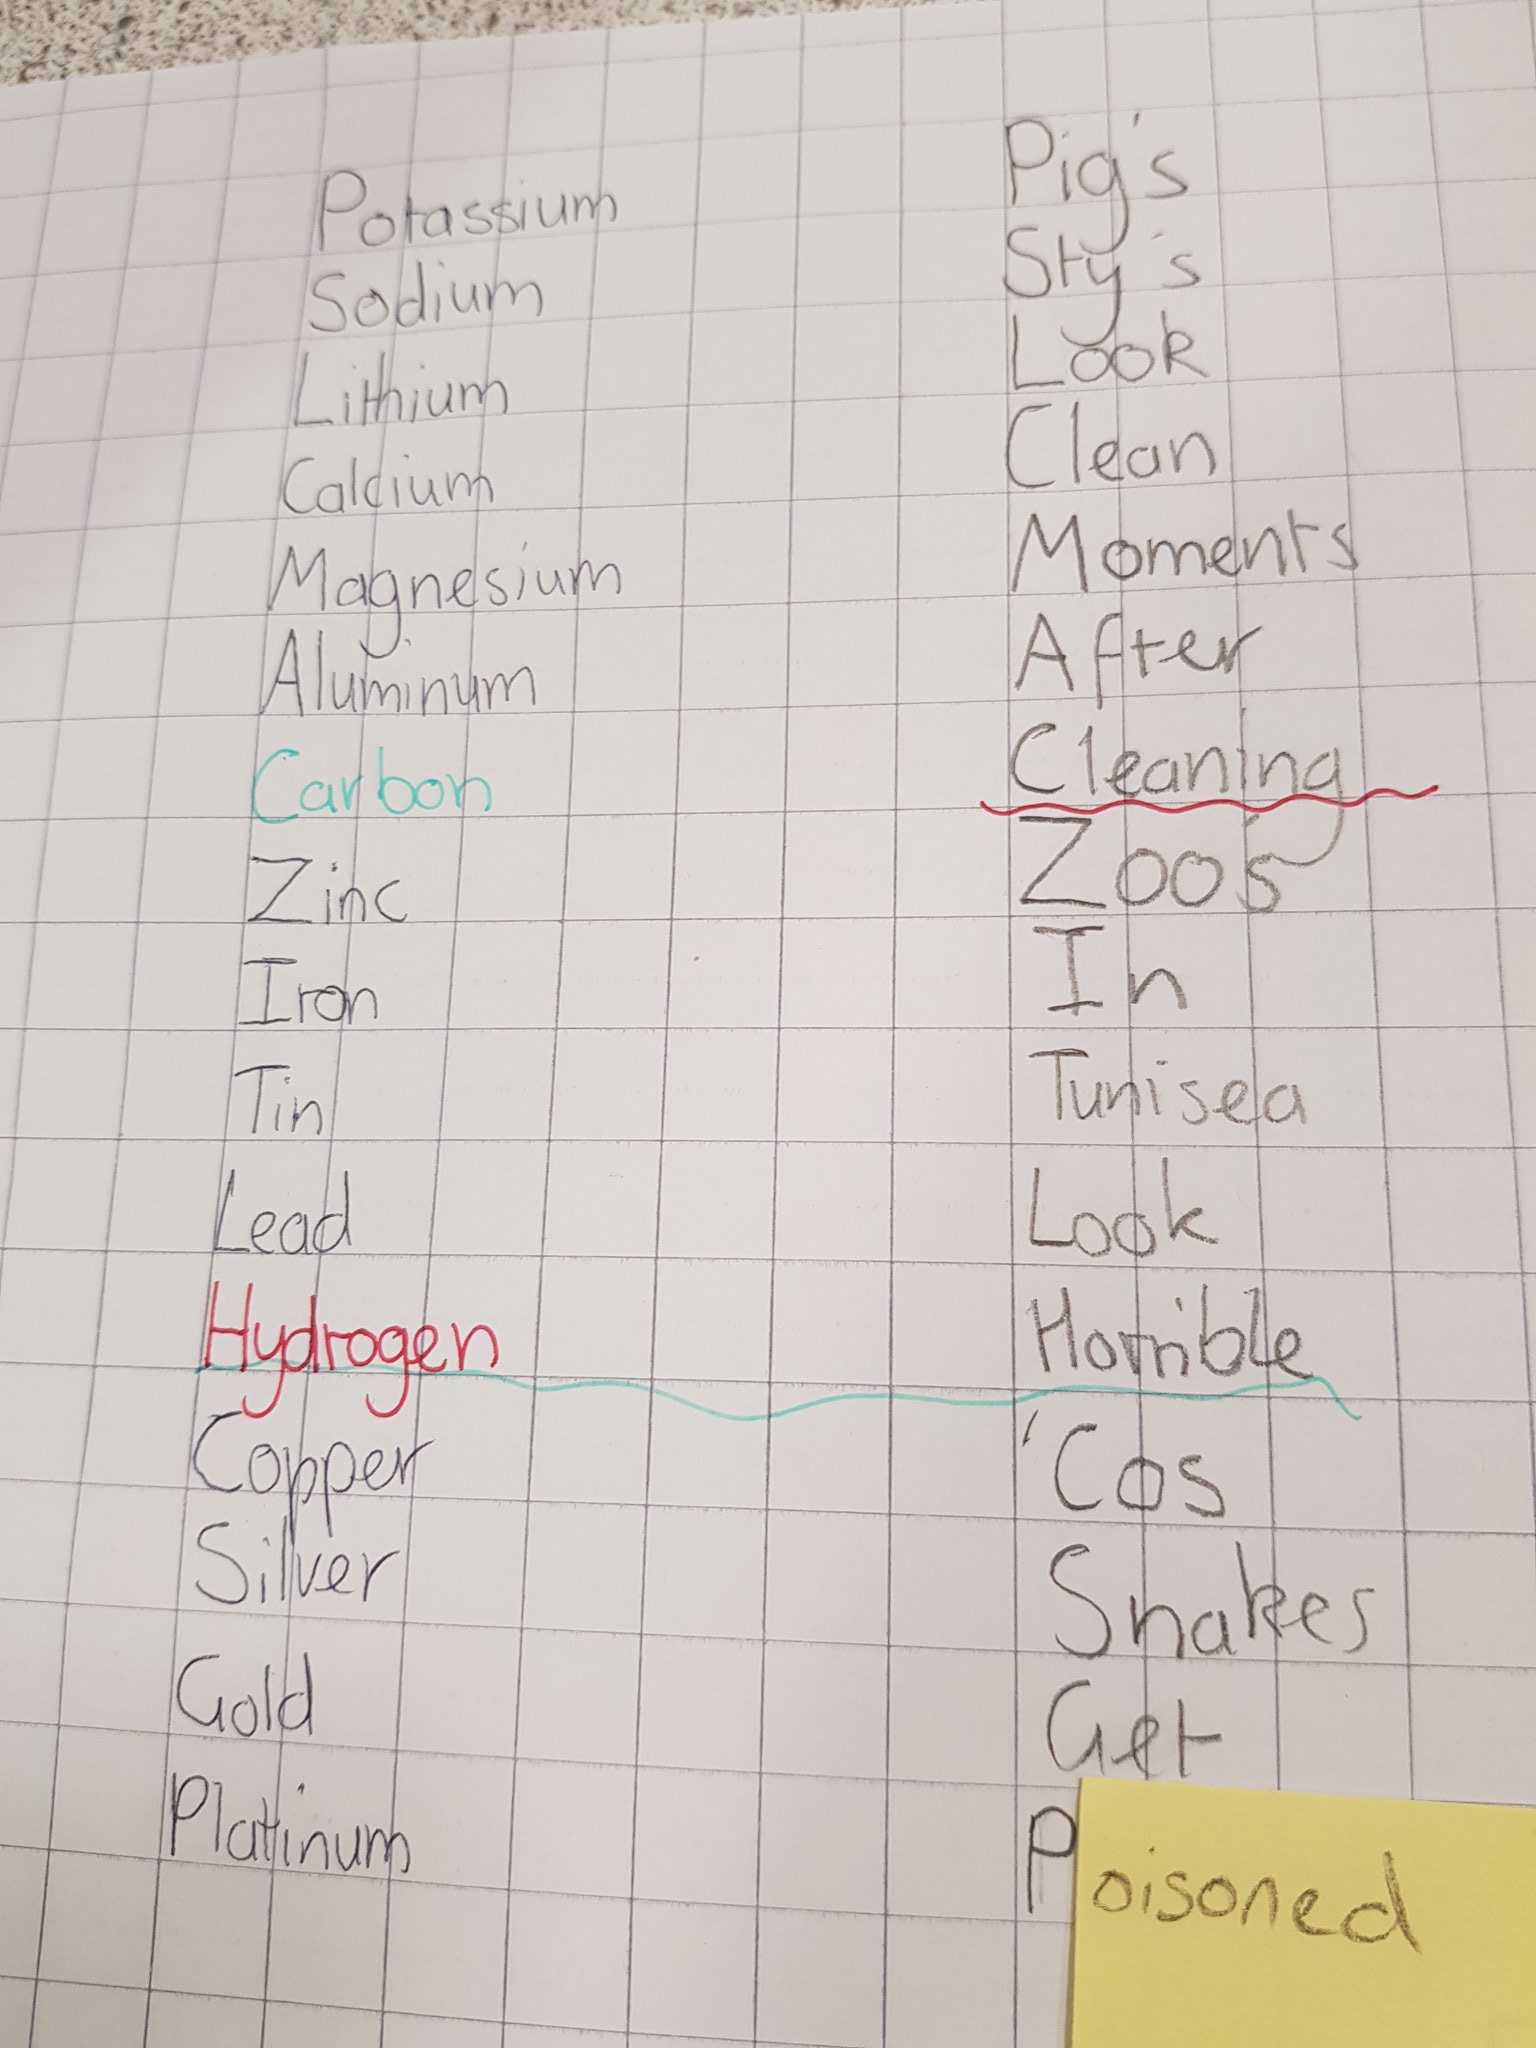 Potassium
Sodium
Lithium
Calcium
Magnesium
Aluminum
Carbon
Zinc
Iron
Tin
Lead
Hydrogen
Copper
Silver
Gold
Platinum
Pig's
Sty's
Look
Clean
Moments
After
Cleaning
Zoo's
In
Tunisea
Look
Horrible
'Cos
Snakes
Get
Poisoned